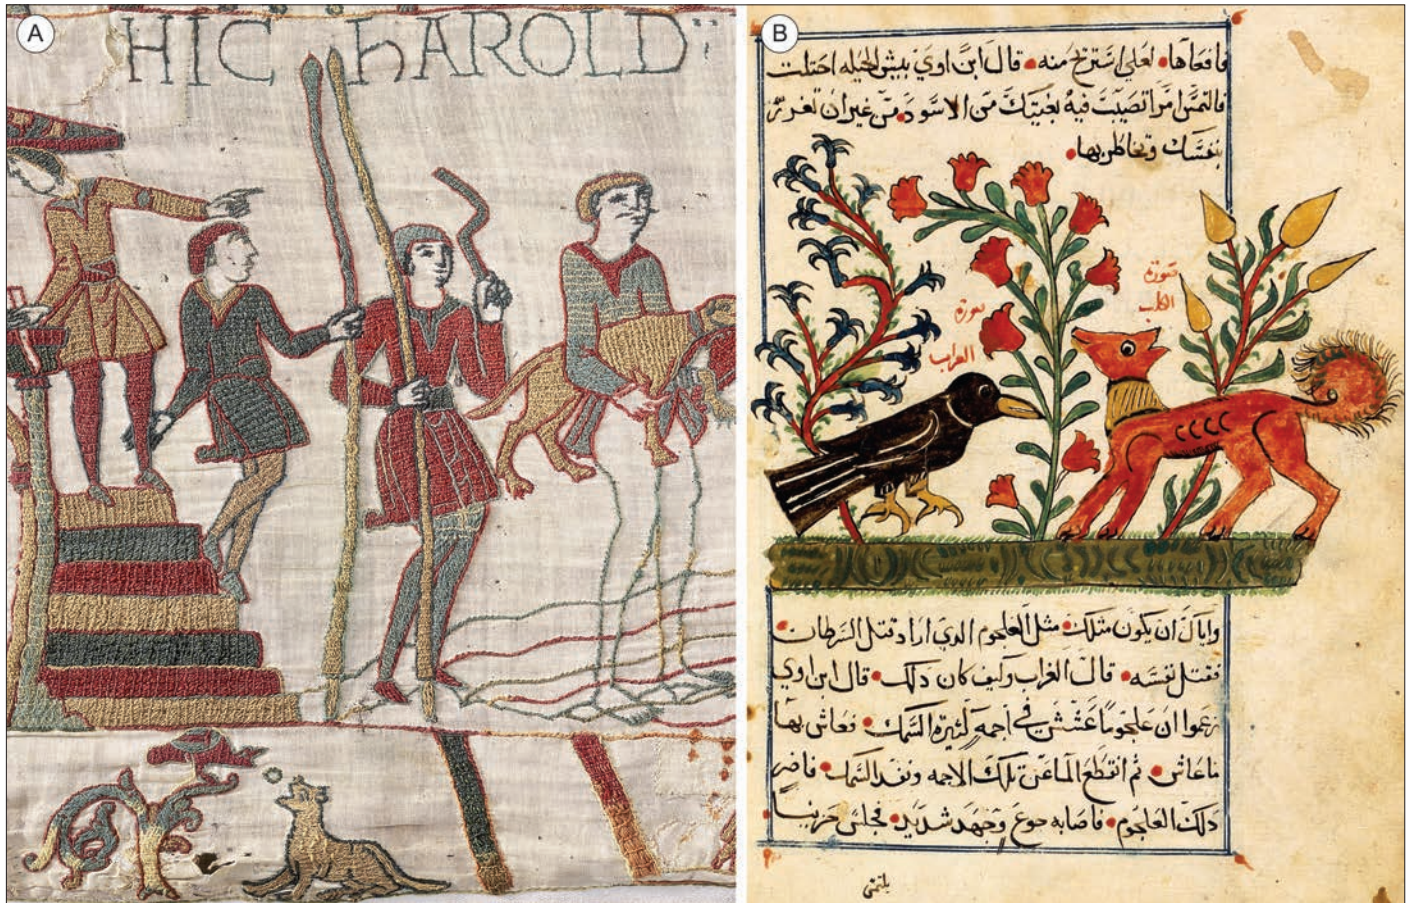 A
HIC HAROLD:
B
فافعلها. لعلي استريح منه. قال ابن اوي بيش الحيله احتلت
فالتمس امرا تصيب فيه بغيتك من الاسود من غير ان تغرر
بنفسك وتخاطر بها.
صورة
الغراب
صورة
الكلب
واياك ان يكون مثلك مثل العلجوم الدي اراد قتل السرطان
فقتل نفسه. قال الغراب وكيف كان دلك. قال ابن اوي
زعموا ان علجوما عشش في اجمه كثيرة السمك. فعاش بها
ما عاش. ثم انقطع الما عن تلك الاجمه ونفد السمك. فاضر
دلك العلجوم. فاصابه جوع وجهد شديد. فجلس حزينا
يلتمس